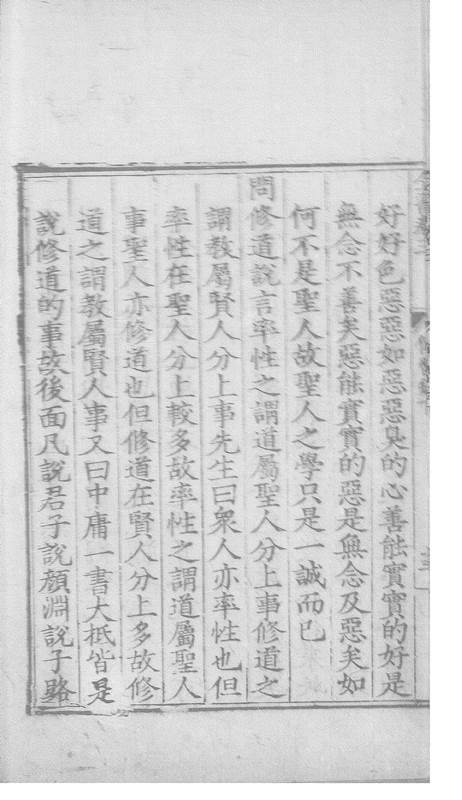 好好色惡惡如惡惡臭的心善能實實的好是
無念不善矣惡能實實的惡是無念及惡矣如
何不是聖人故聖人之學只是一誠而已
問修道說言率性之謂道屬聖人分上事修道之
謂教屬賢人分上事先生曰衆人亦率性也但
率性在聖人分上較多故率性之謂道屬聖人
事聖人亦修道也但修道在賢人分上多故修
道之謂教屬賢人事又曰中庸一書大抵皆是
說修道的事故後面凡說君子說顏淵說子路